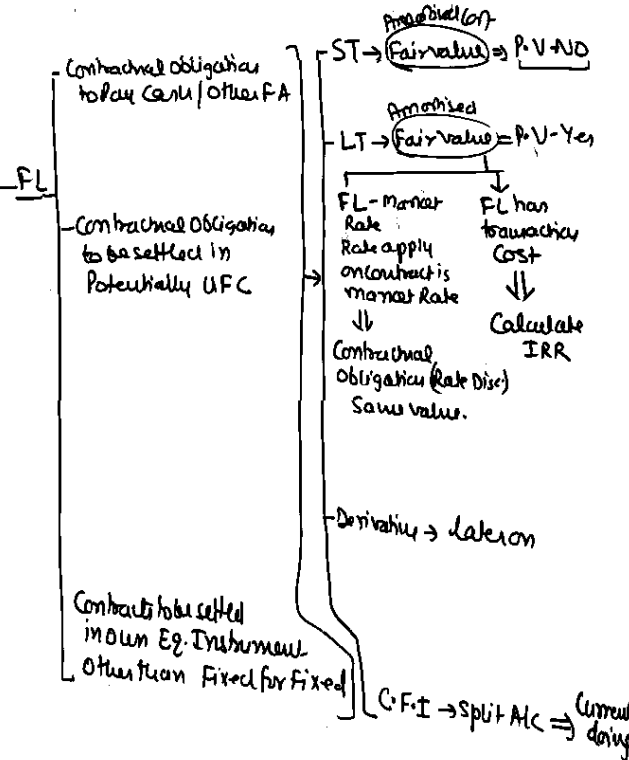 FL
Contractual Obligation
to Pay Cash / Other FA
Contractual Obligation
to be settled in
Potentially UFC
Contracts to be settled
in own Eq. Instrument
Other than Fixed for Fixed
ST → Fair value ⇒ P.V-NO
Amortised
LT → Fair Value = P.V-Yes
FL - Market
Rate
Rate apply
on contract is
Market Rate
⇓
Contractual
Obligation (Rate Disc)
Same value.
FL has
transaction
Cost
⇓
Calculate
IRR
Derivative → Later on
C.F.I → Split A/c ⇒ Current
doing